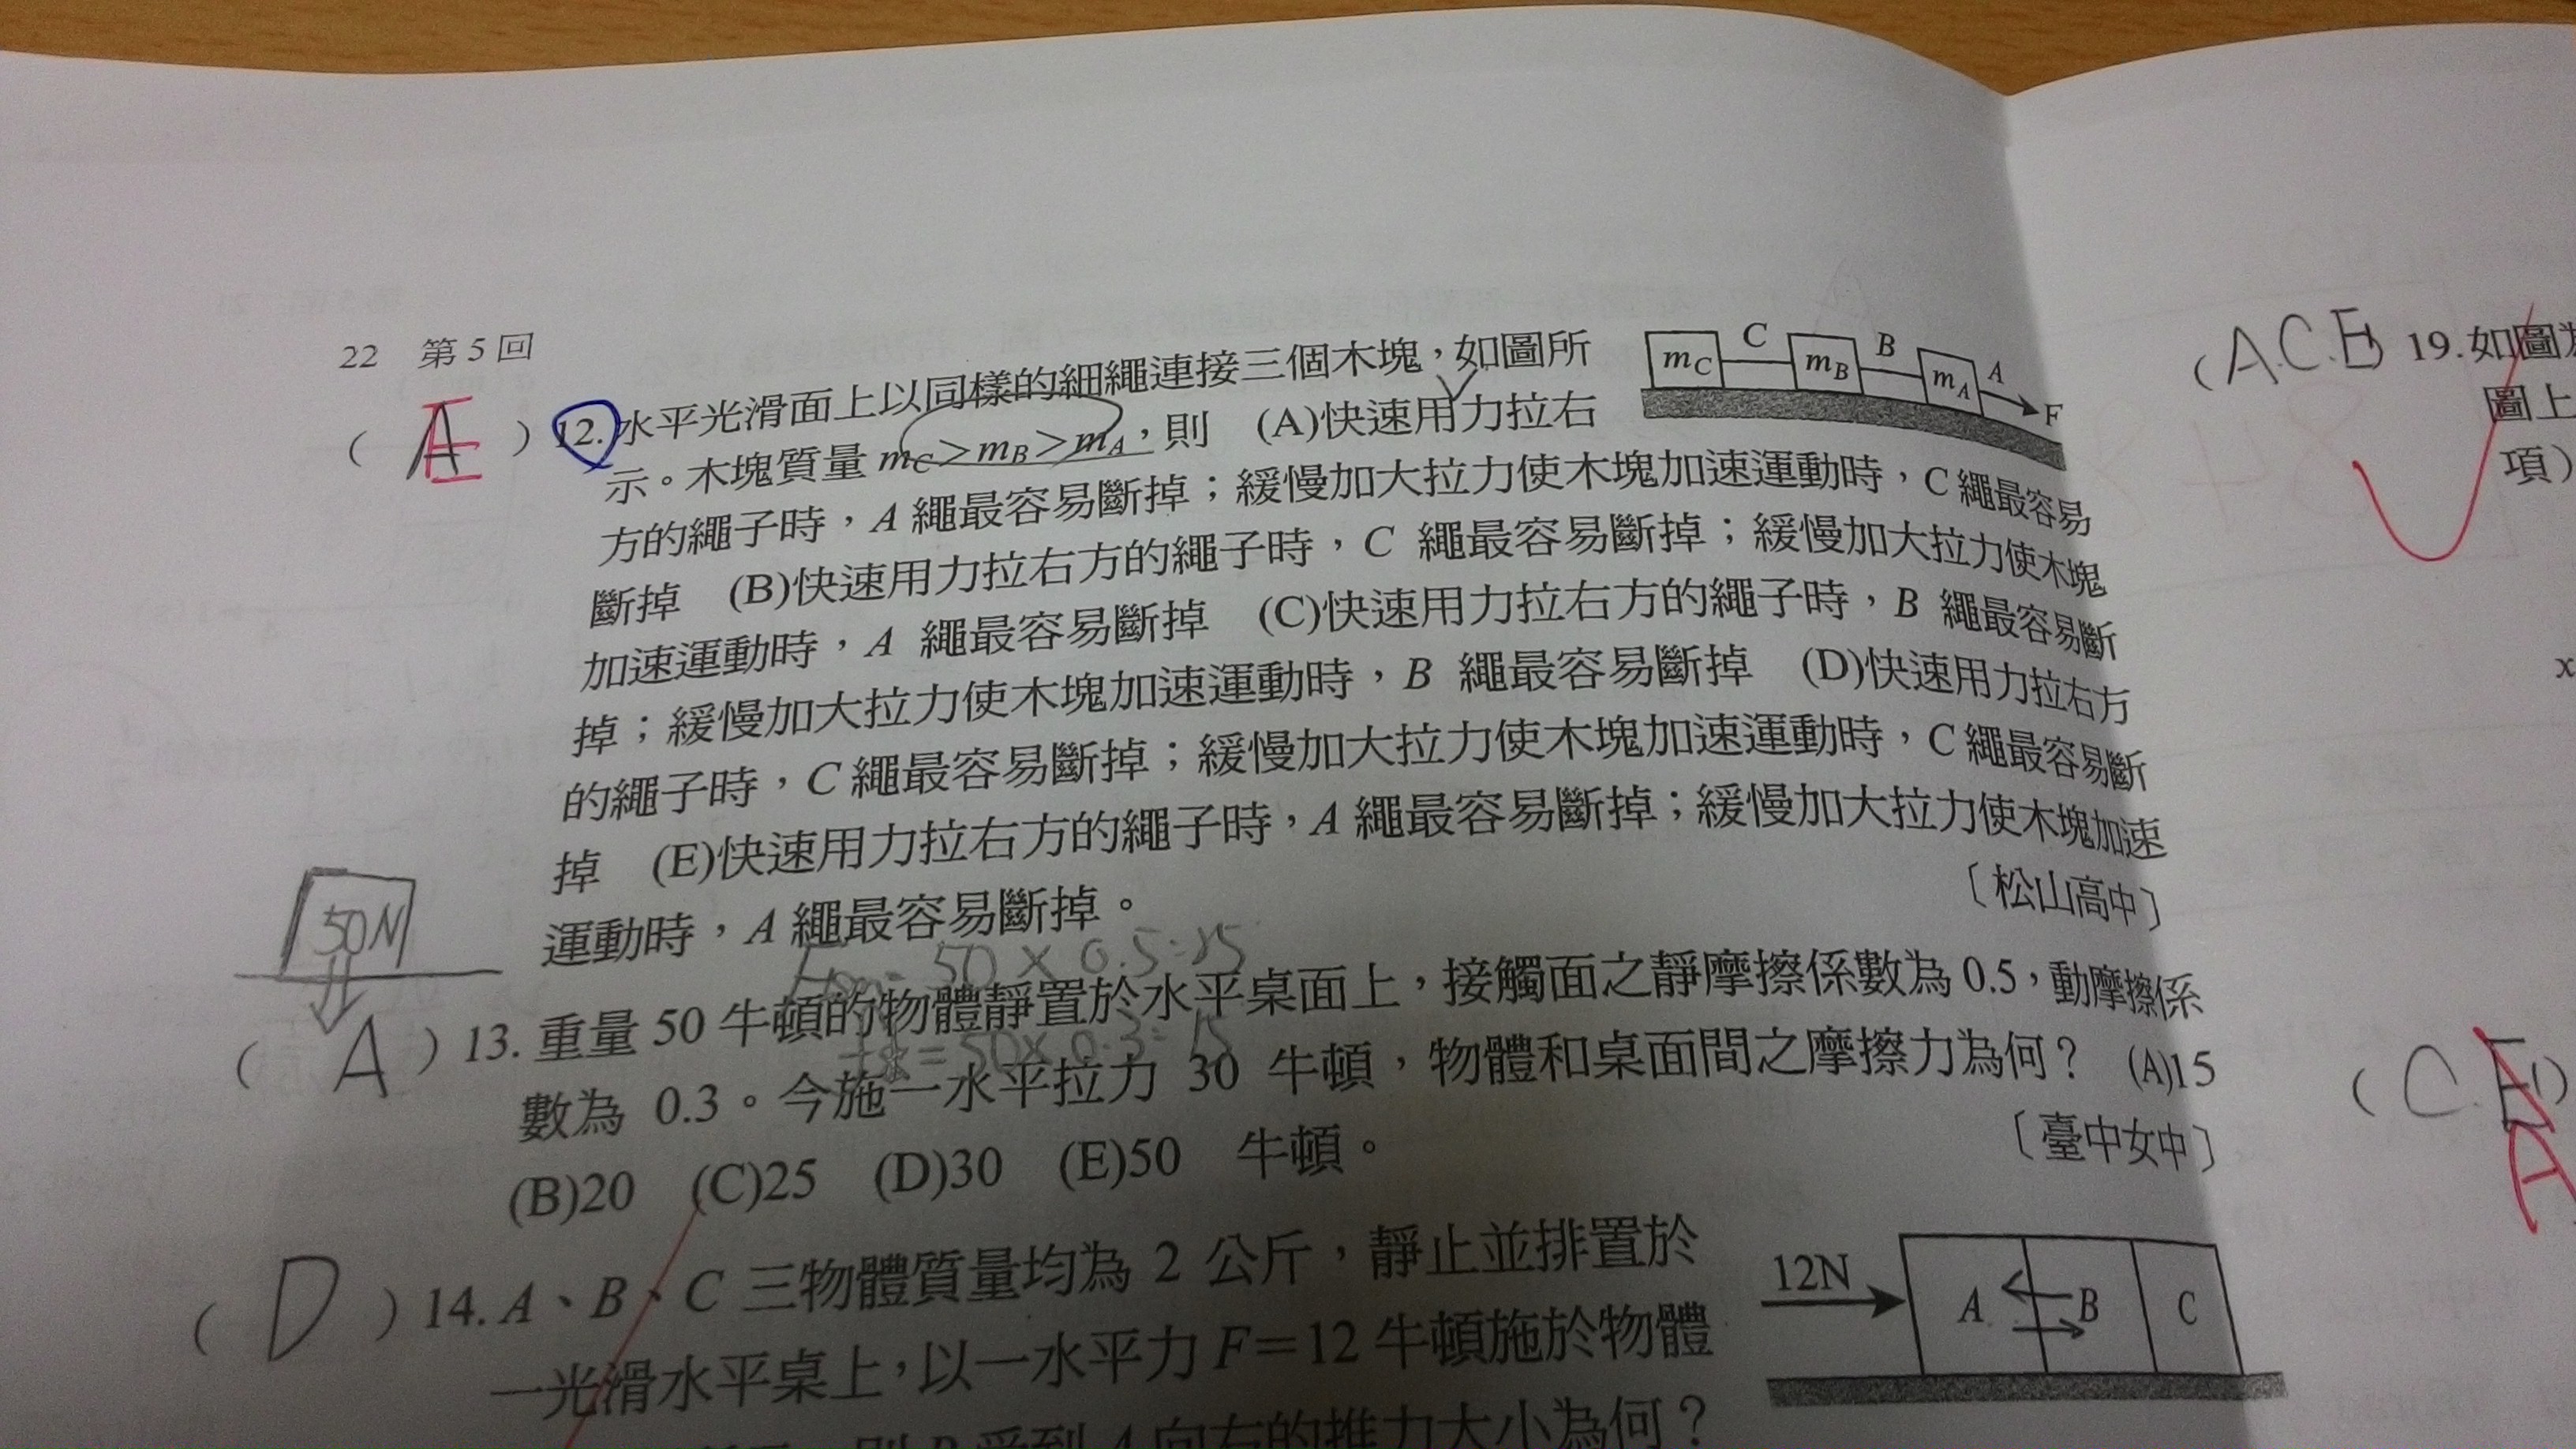 22 第5回
( A E ) 12.水平光滑面上以同樣的細繩連接三個木塊，如圖所
示。木塊質量 mC＞mB＞mA，則 (A)快速用力拉右
方的繩子時，A 繩最容易斷掉；緩慢加大拉力使木塊加速運動時，C 繩最容易
斷掉 (B)快速用力拉右方的繩子時，C 繩最容易斷掉；緩慢加大拉力使木塊
加速運動時，A 繩最容易斷掉 (C)快速用力拉右方的繩子時，B 繩最容易斷
掉；緩慢加大拉力使木塊加速運動時，B 繩最容易斷掉 (D)快速用力拉右方
的繩子時，C 繩最容易斷掉；緩慢加大拉力使木塊加速運動時，C 繩最容易斷
掉 (E)快速用力拉右方的繩子時，A 繩最容易斷掉；緩慢加大拉力使木塊加速
運動時，A 繩最容易斷掉。
〔松山高中〕
mC C mB B mA A F
50N
50 × 0.5=25
fk=50×0.3=15
( A ) 13. 重量 50 牛頓的物體靜置於水平桌面上，接觸面之靜摩擦係數為 0.5，動摩擦係
數為 0.3。今施一水平拉力 30 牛頓，物體和桌面間之摩擦力為何？ (A)15
(B)20 (C)25 (D)30 (E)50 牛頓。
〔臺中女中〕
( D ) 14. A、B、C 三物體質量均為 2 公斤，靜止並排置於
一光滑水平桌上，以一水平力 F＝12 牛頓施於物體
則 B 受到 A 向右的推力大小為何？
12N A B C
(A.C.E) 19.如圖為
圖上
項)
x
(C.E)
A